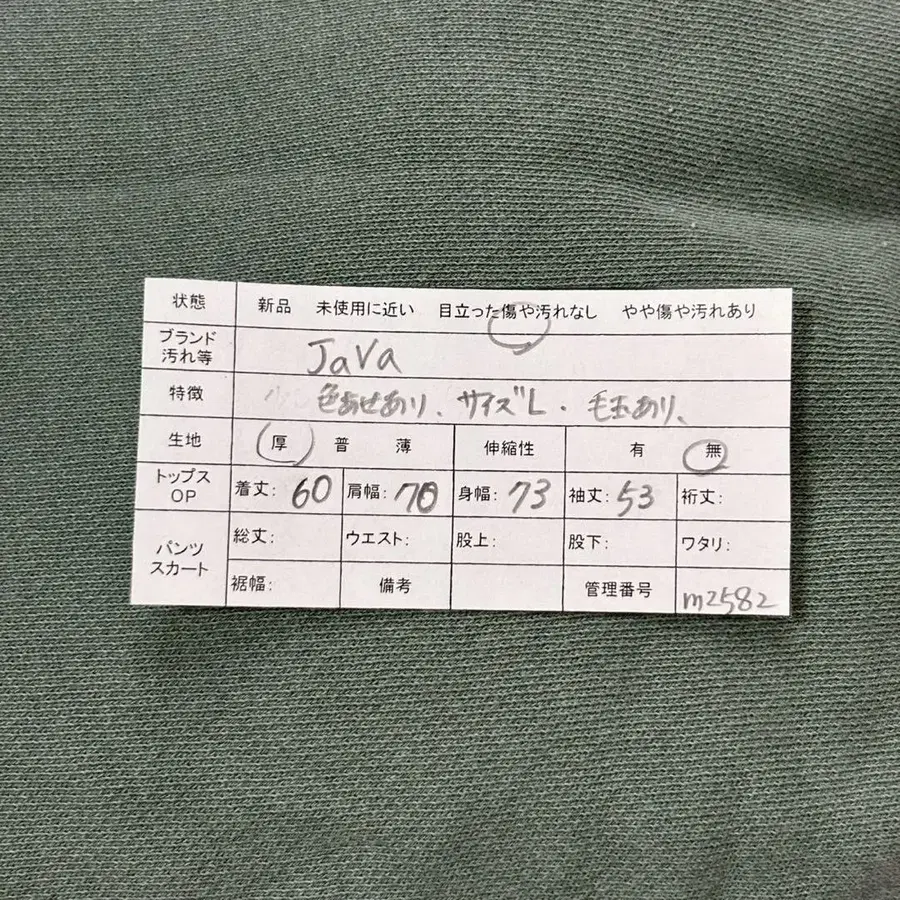 状態 新品 未使用に近い 目立った傷や汚れなし やや傷や汚れあり
ブランド
汚れ等 JaVa
特徴 色あせあり、サイズL・毛玉あり、
生地 厚 普 薄 伸縮性 有 無
トップス
OP 着丈: 60 肩幅: 70 身幅: 73 袖丈: 53 裄丈:
パンツ
スカート 総丈: ウエスト: 股上: 股下: ワタリ:
裾幅: 備考 管理番号 m2582